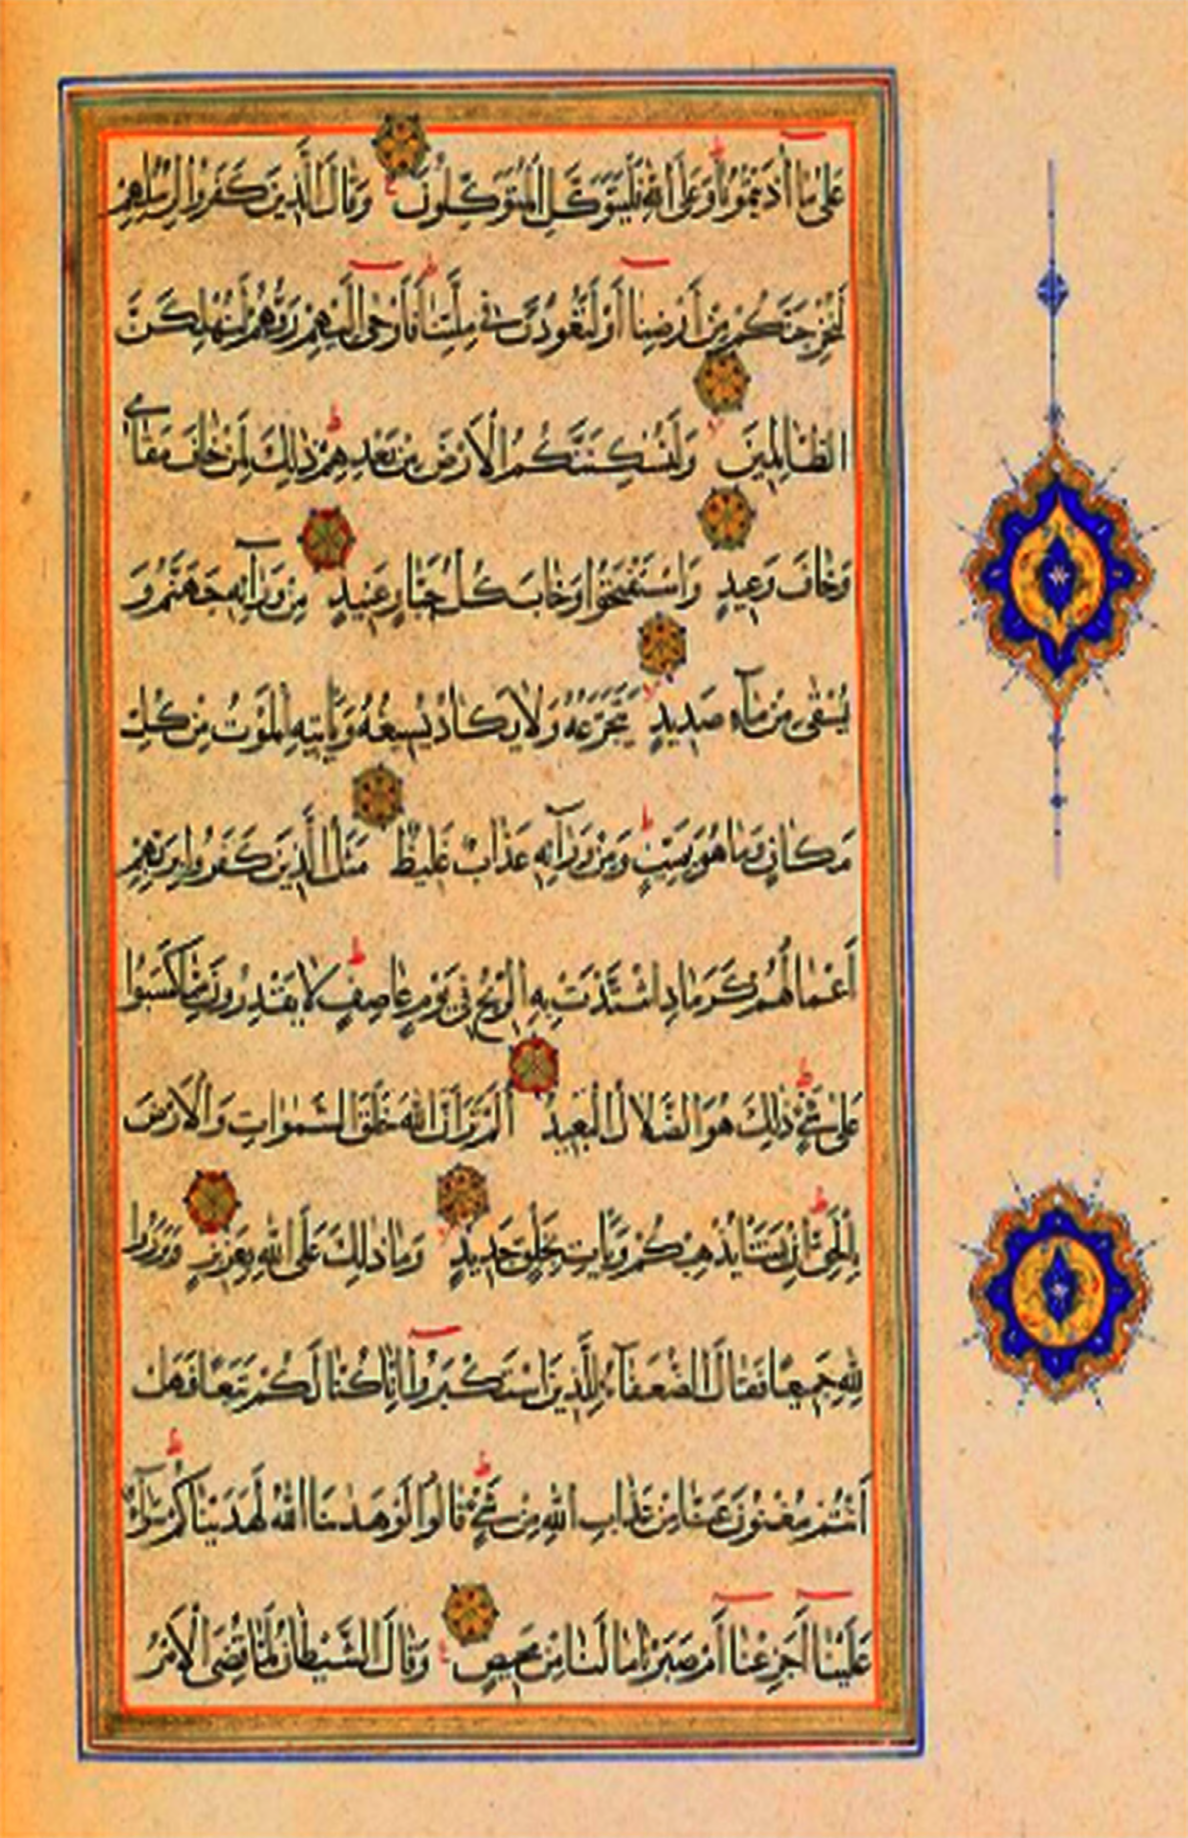 عَلٰى مَا أٰذَيْتُمُونَا وَعَلَى اللّٰهِ فَلْيَتَوَكَّلِ الْمُتَوَكِّلُونَ وَقَالَ الَّذِينَ كَفَرُوا لِرُسُلِهِمْ
لَنُخْرِجَنَّكُمْ مِنْ أَرْضِنَا أَوْ لَتَعُودُنَّ فِي مِلَّتِنَا فَأَوْحٰى إِلَيْهِمْ رَبُّهُمْ لَنُهْلِكَنَّ
الظَّالِمِينَ وَلَنُسْكِنَنَّكُمُ الْأَرْضَ مِنْ بَعْدِهِمْ ذٰلِكَ لِمَنْ خَافَ مَقَامِي
وَخَافَ وَعِيدِ وَاسْتَفْتَحُوا وَخَابَ كُلُّ جَبَّارٍ عَنِيدٍ مِنْ وَرَآئِهِ جَهَنَّمُ وَ
يُسْقٰى مِنْ مَآءٍ صَدِيدٍ يَتَجَرَّعُهُ وَلَا يَكَادُ يُسِيغُهُ وَيَأْتِيهِ الْمَوْتُ مِنْ كُلِّ
مَكَانٍ وَمَا هُوَ بِمَيِّتٍ وَمِنْ وَرَآئِهِ عَذَابٌ غَلِيظٌ مَثَلُ الَّذِينَ كَفَرُوا بِرَبِّهِمْ
أَعْمَالُهُمْ كَرَمَادٍ اشْتَدَّتْ بِهِ الرِّيحُ فِي يَوْمٍ عَاصِفٍ لَا يَقْدِرُونَ مِمَّا كَسَبُوا
عَلٰى شَيْءٍ ذٰلِكَ هُوَ الضَّلَالُ الْبَعِيدُ أَلَمْ تَرَ أَنَّ اللّٰهَ خَلَقَ السَّمٰوَاتِ وَالْأَرْضَ
بِالْحَقِّ إِنْ يَشَأْ يُذْهِبْكُمْ وَيَأْتِ بِخَلْقٍ جَدِيدٍ وَمَا ذٰلِكَ عَلَى اللّٰهِ بِعَزِيزٍ وَبَرَزُوا
لِلّٰهِ جَمِيعًا فَقَالَ الضُّعَفَآءُ لِلَّذِينَ اسْتَكْبَرُوا إِنَّا كُنَّا لَكُمْ تَبَعًا فَهَلْ
أَنْتُمْ مُغْنُونَ عَنَّا مِنْ عَذَابِ اللّٰهِ مِنْ شَيْءٍ قَالُوا لَوْ هَدٰىنَا اللّٰهُ لَهَدَيْنَاكُمْ سَوَآءٌ
عَلَيْنَا أَجَزِعْنَا أَمْ صَبَرْنَا مَا لَنَا مِنْ مَحِيصٍ وَقَالَ الشَّيْطَانُ لَمَّا قُضِيَ الْأَمْرُ